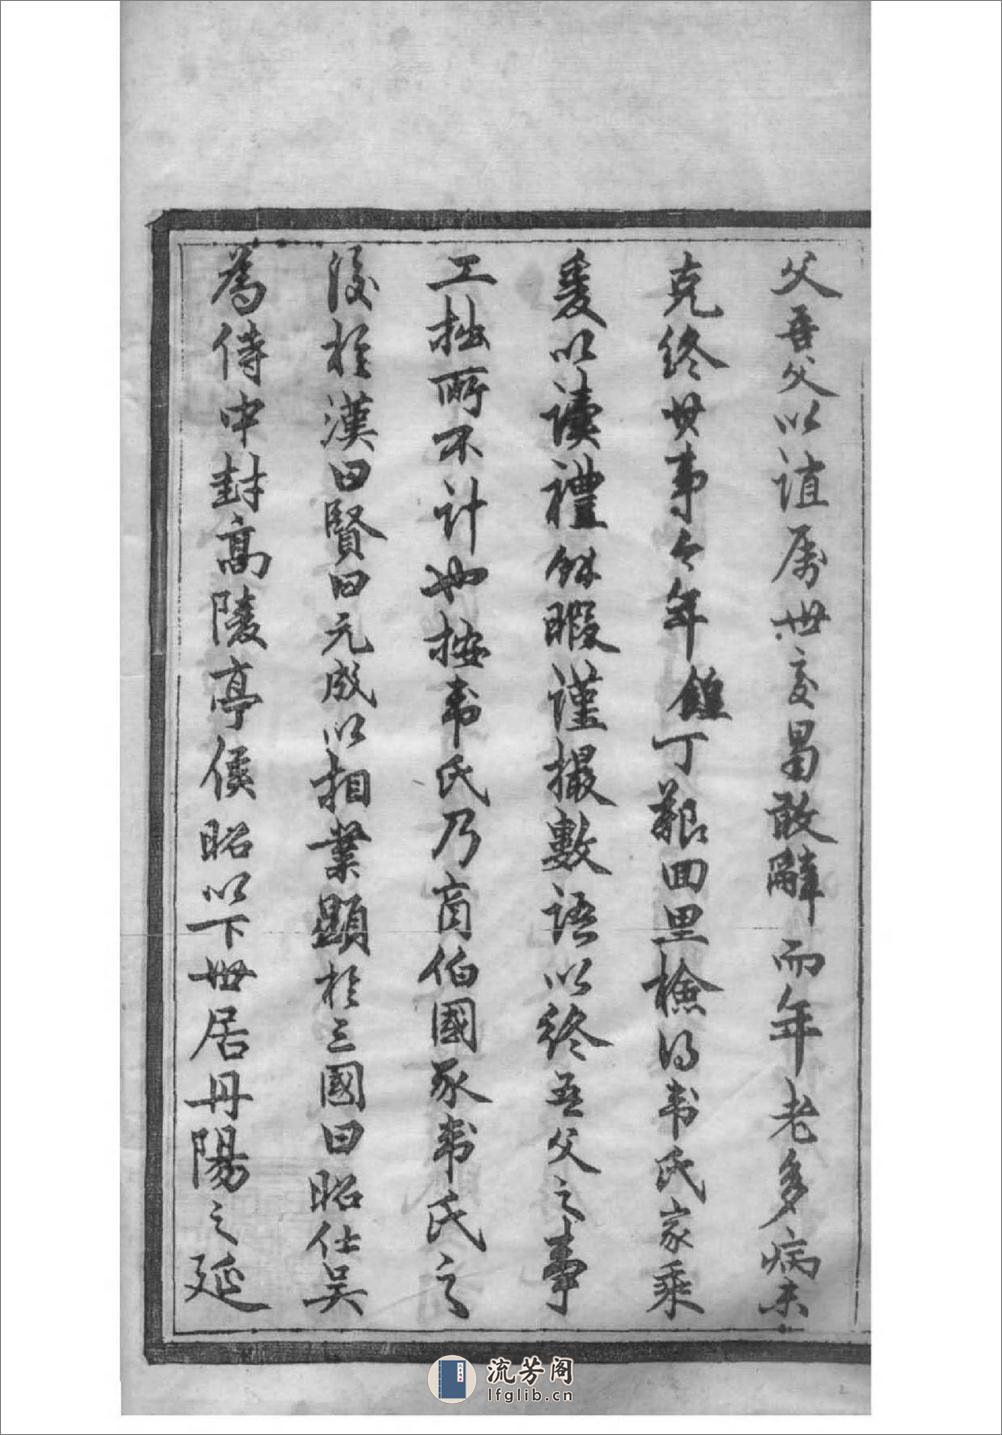 父吾父以誼屬世交曷敢辭而年老多病未
克終斯事今年鎧丁艱回里檢得韋氏家乘
爰以讀禮餘暇謹撮數語以終吾父之事
工拙所不計也按韋氏乃商伯國豕韋氏之
後於漢曰賢曰元成以相業顯於三國曰昭仕吳
為侍中封高陵亭侯昭以下世居丹陽之延
流芳阁
lfglib.cn